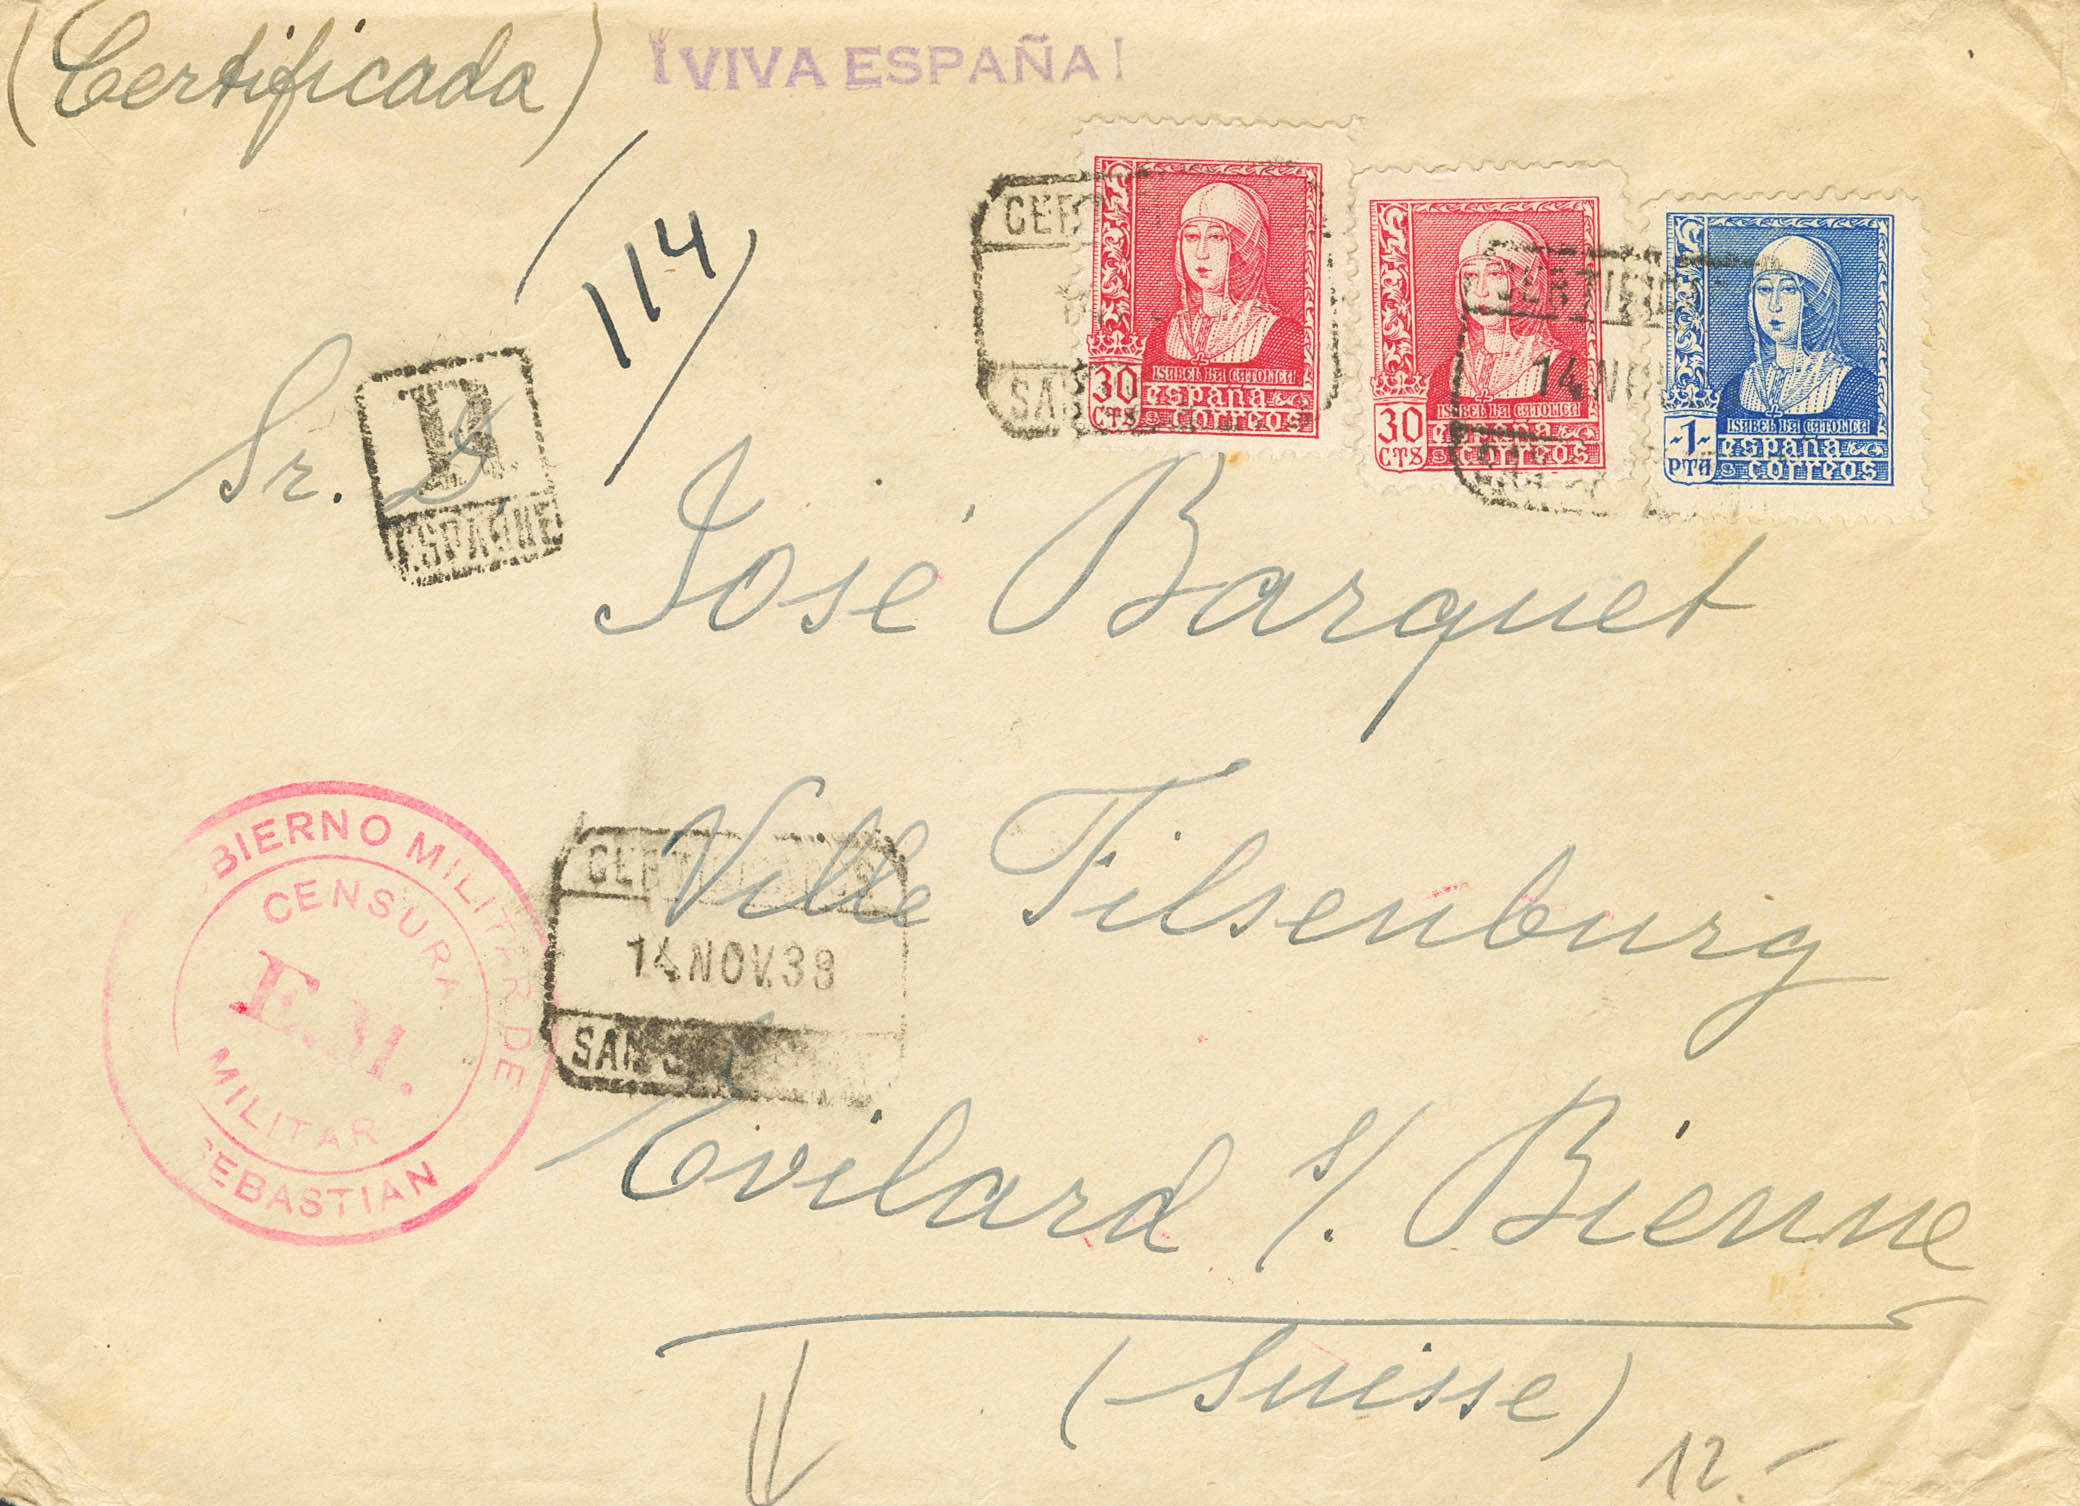 (Certificada)
¡VIVA ESPAÑA!
114
R
ESPAGNE
CERT
SAN
30
CTS
ISABEL LA CATOLICA
españa
correos
30
CTS
ISABEL LA CATOLICA
españa
correos
CERTIFICA
14 NOV
-1-
PTA
ISABEL LA CATOLICA
españa
correos
Sr. D.
José Barquet
Ville Tilsenburg
Evilard s/. Bienne
(Suisse)
BIERNO MILITAR DE
SEBASTIAN
CENSURA
E.M.
MILITAR
CERTIFICADOS
14.NOV.38
SAN S
12.-